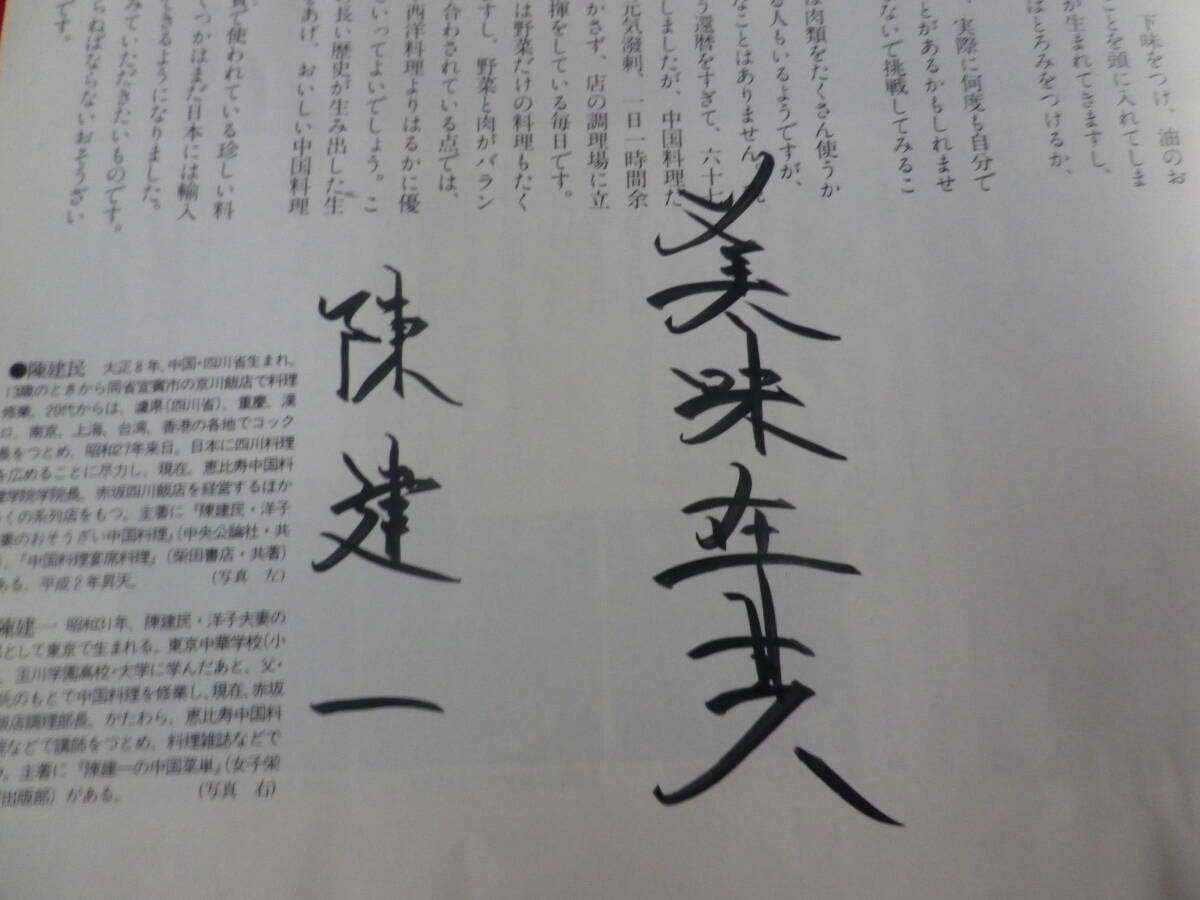 下味をつけ、油のお
ことを頭に入れてしま
が生まれてきますし、
はとろみをつけるか、
実際に何度も自分で
とがあるかもしれませ
ないで挑戦してみるこ
は肉類をたくさん使うか
る人もいるようですが、
なことはありません
う還暦をすぎて、六十七
しましたが、中国料理た
元気潑剌、一日一時間余
かさず、店の調理場に立
揮をしている毎日です。
は野菜だけの料理もたく
すし、野菜と肉がバラン
合わされている点では、
西洋料理よりはるかに優
いってよいでしょう。こ
の長い歴史が生み出した生
あげ、おいしい中国料理
美味在
陳建一
貫で使われている珍しい料
くつかはまだ日本には輸入
できるようになりました。
みていただきたいものです。
らねばならないおそうざい
です。
●陳建民 大正8年、中国・四川省生まれ。
13歳のときから同省宜賓市の京川飯店で料理
修業。20代からは、瀘県(四川省)、重慶、漢
口、南京、上海、台湾、香港の各地でコック
長をつとめ、昭和27年来日。日本に四川料理
を広めることに尽力し、現在、恵比寿中国料
理学院学院長。赤坂四川飯店を経営するほか
くの系列店をもつ。主著に『陳建民・洋子
妻のおそうざい中国料理』(中央公論社・共
、『中国料理宴席料理』(柴田書店・共著)
ある。平成2年昇天。 (写真 左)
陳建一 昭和31年、陳建民・洋子夫妻の
として東京で生まれる。東京中華学校(小
、玉川学園高校・大学に学んだあと、父・
氏のもとで中国料理を修業し、現在、赤坂
飯店調理部長。かたわら、恵比寿中国料
院などで講師をつとめ、料理雑誌などで
。主著に『陳建一の中国菜単』(女子栄
出版部)がある。 (写真 右)